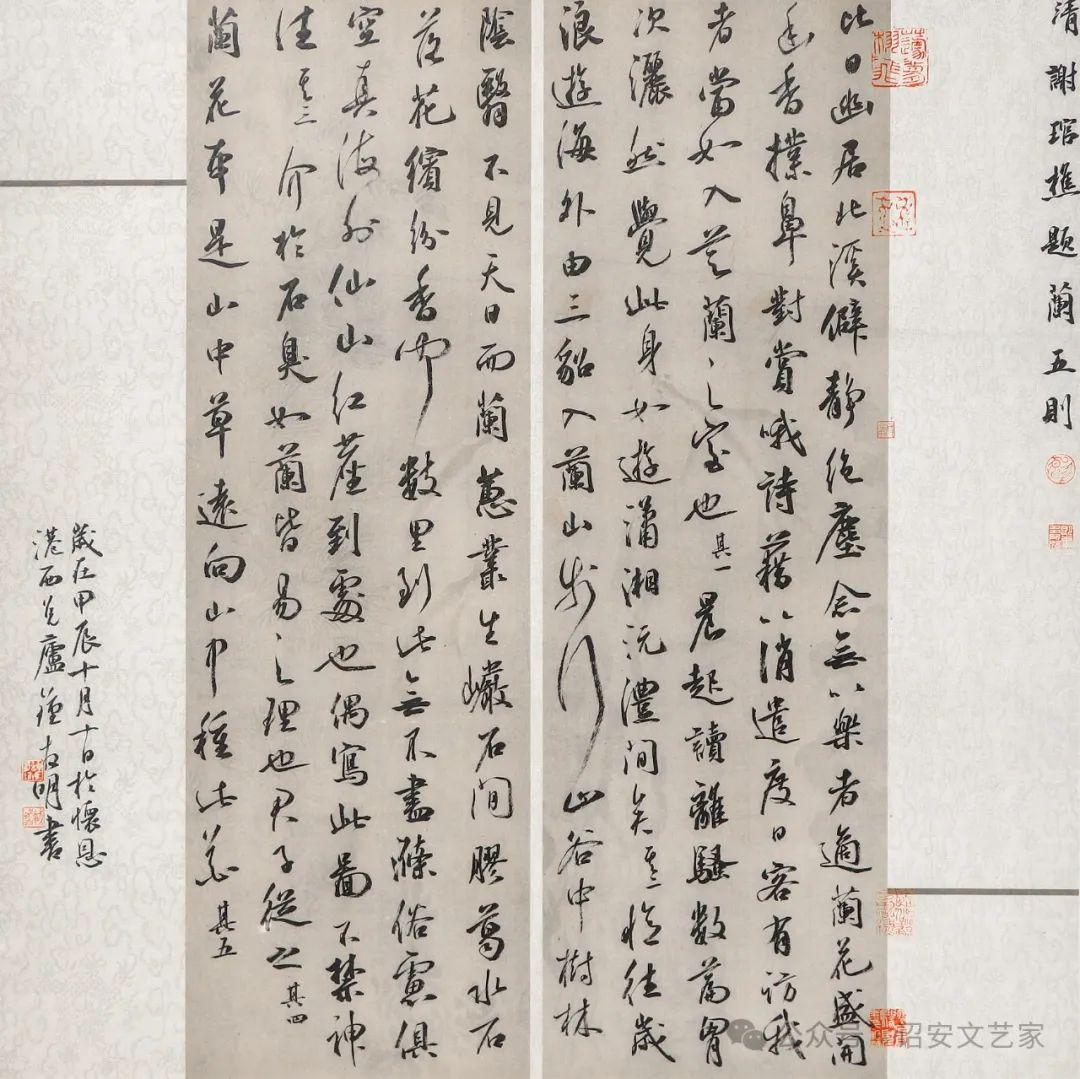 清謝琯樵題蘭五則
比日幽居北溪僻靜絕塵念無以樂者適蘭花盛開
幽香撲鼻對賞哦詩藉以消遣度日客有訪我
者當如入芝蘭之室也其一晨起讀離騷數篇胃
次灑然覺此身如遊瀟湘沅澧間矣其二憶往歲
浪遊海外由三貂入蘭山步行山谷中樹林
陰翳不見天日而蘭蕙叢生巖石間膠葛水石
落花繽紛香聞數里到此無不盡滌俗慮俱
空真海外仙山紅塵到處也偶寫此圖不禁神
往其三介於石臭如蘭皆易之理也君子從之其四
蘭花本是山中草還向山中種此花其五
歲在甲辰十月十日於懷恩
港西 廬 友明書
公众号·诏安文艺家